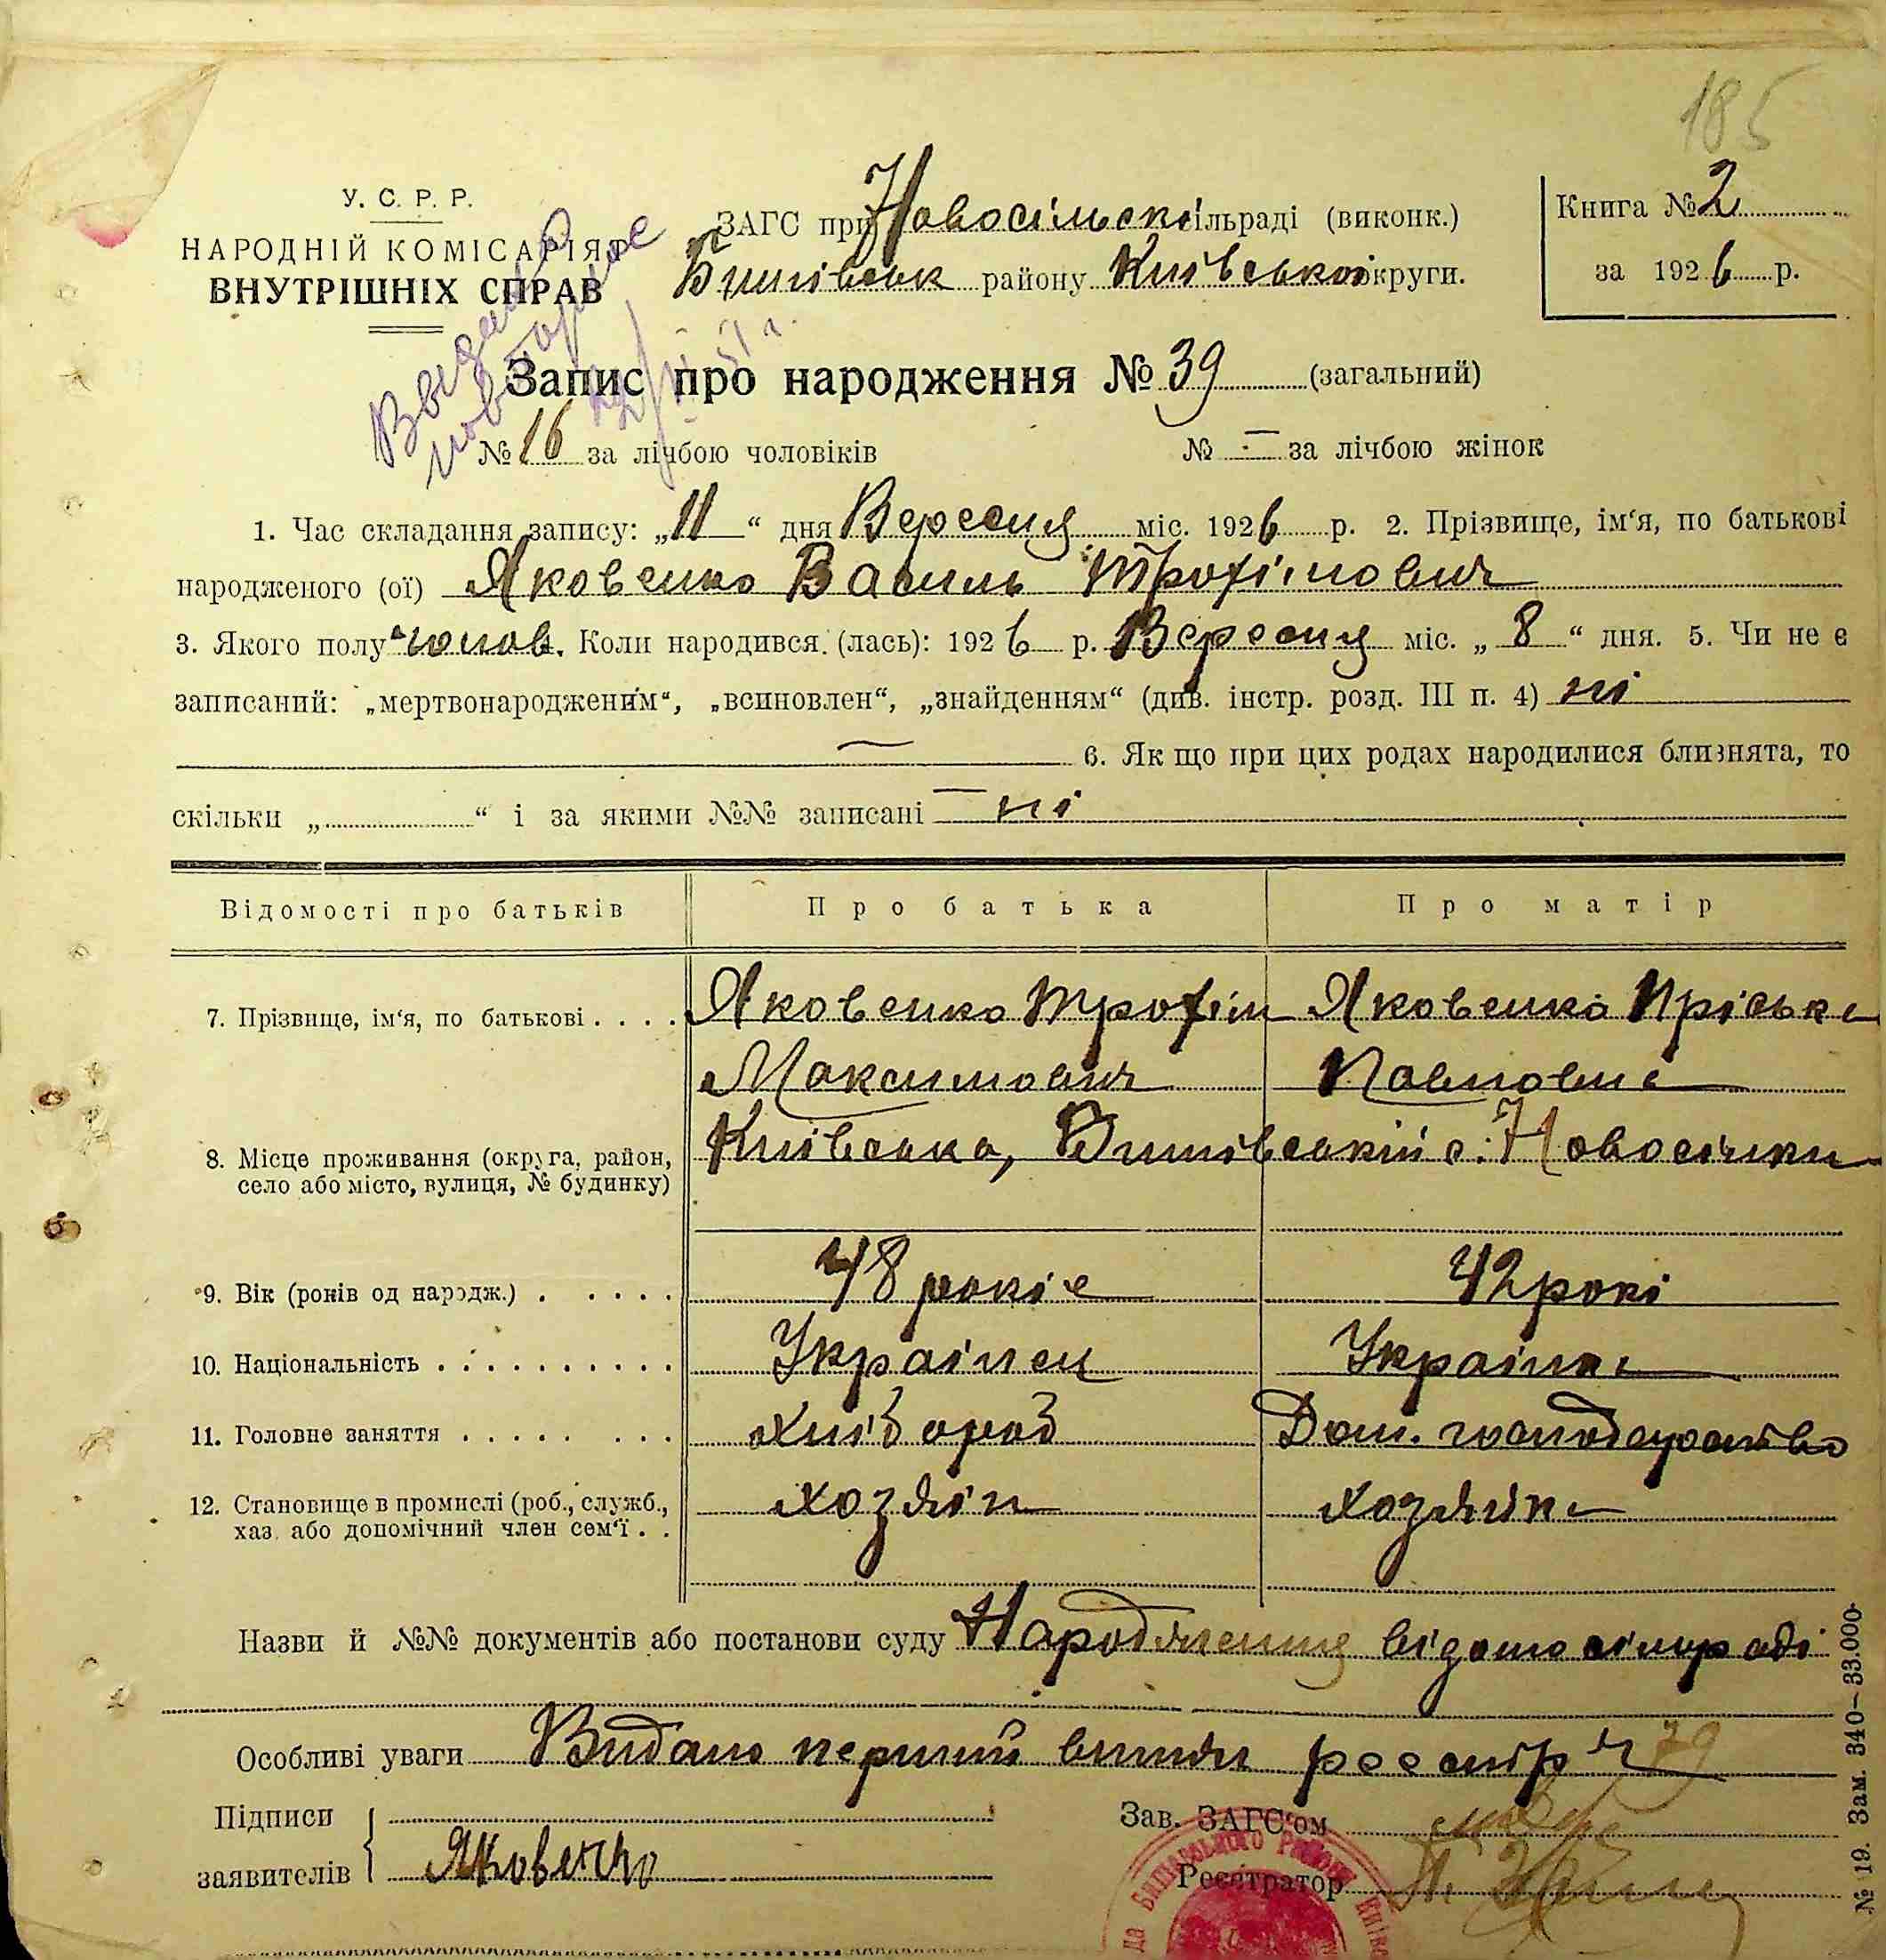 185
У. С. Р. Р.
НАРОДНІЙ КОМІСАРІЯТ
ВНУТРІШНІХ СПРАВ
ЗАГС при Новосільск сільраді (виконк.)
району Київської округи.
Книга № 2
за 1926 р.
повторное
Запис про народження № 39 (загальний)
№ 16 за лічбою чоловіків № — за лічбою жінок
1. Час складання запису: „11“ дня Вересня міс. 1926 р. 2. Прізвище, ім‘я, по батькові
народженого (ої) Яковенко Василь Трофімович
3. Якого полу чолов. Коли народився (лась): 1926 р. Вересня міс. „8“ дня. 5. Чи не є
записаний: „мертвонародженим“, „всиновлен“, „знайденням“ (див. інстр. розд. III п. 4) ні
— 6. Як що при цих родах народилися близнята, то
скільки „ “ і за якими №№ записані — ні
Відомості про батьків Про батька Про матір
7. Прізвище, ім‘я, по батькові . . . . Яковенко Трофім Яковенко Пріська
Максимович Павловна
8. Місце проживання (округа, район, Київська, с. Новосілки
село або місто, вулиця, № будинку)
9. Вік (років од народж.) . . . . . 48 років 42 рокі
10. Національність . . . . . . . . . . Українец Українка
11. Головне заняття . . . . . . . . Хлібороб Дом. господарство
12. Становище в промислі (роб., служб., хозяїн хозяйка
хаз. або допомічний член сем‘ї . .
Назви й №№ документів або постанови суду Народження відомо сільраді
Особливі уваги Видано перший витяг реестр № 79
Підписи
заявителів Яковенко
Зав. ЗАГС‘ом
Реєстратор
№ 19. Зам. 340–33.000